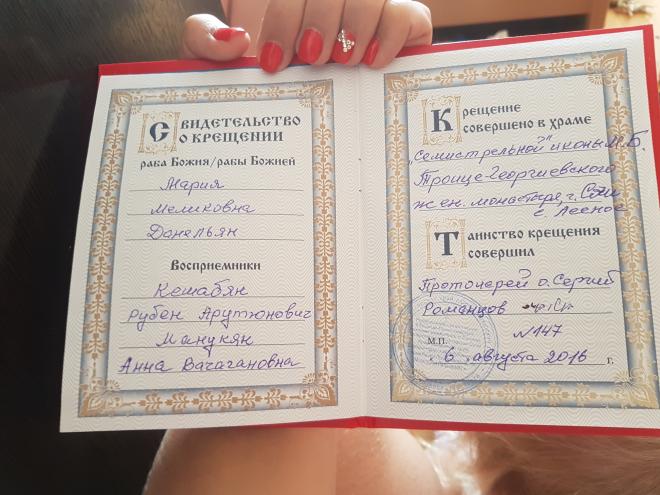 Свидетельство
о крещении
раба Божия/рабы Божией
Мария
Меликовна
Данельян
Восприемники
Кешабян
Рубен Арутюнович
Манукян
Анна Вачагановна
Крещение
совершено в храме
"Семистрельной" иконы М.Б.
Троице-Георгиевского
жен. монастыря, г. Сочи
с. Лесное
Таинство крещения
совершил
Протоиерей о. Сергий
Романцов
N 147
М.П.
6 августа 2016 г.